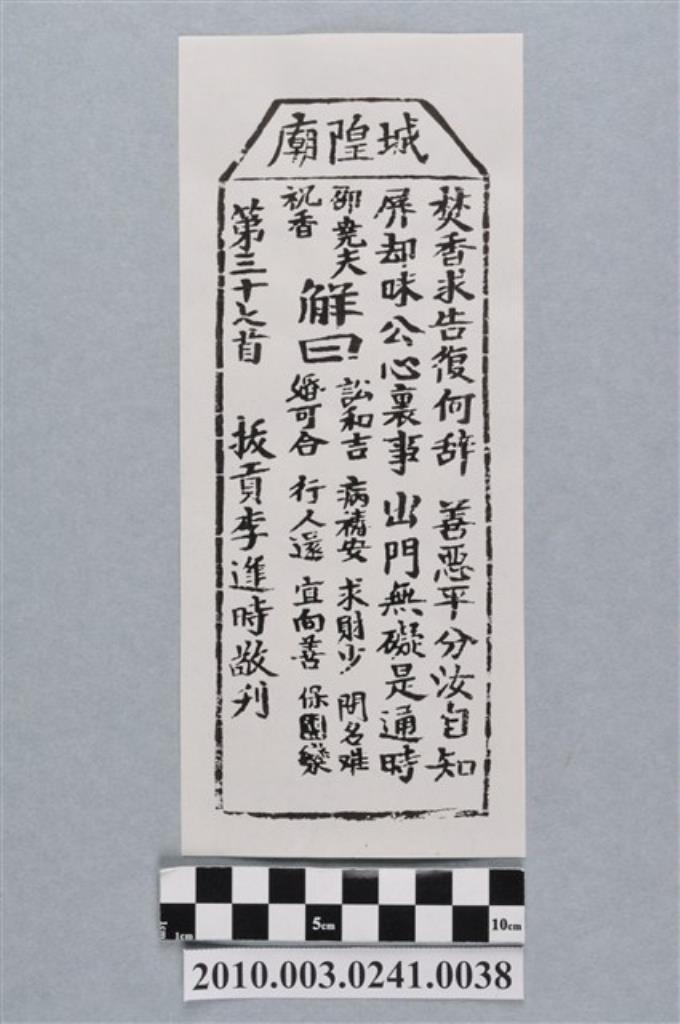 城隍廟
焚香求告復何辞　善惡平分汝自知
屏却昧公心裏事　出門無礙是通時
邵堯夫祝香
解曰
訟和吉　病禱安　求財少　問名难
婚可合　行人還　宜向善　保團
第三十七首　拔貢李進時敬刋
1cm 5cm 10cm
2010.003.0241.0038